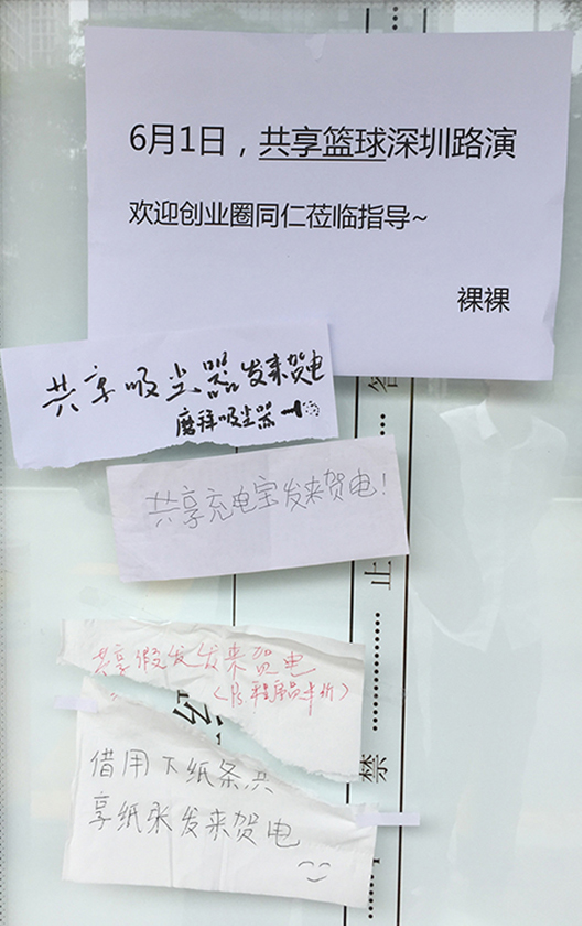 6月1日，共享篮球深圳路演
欢迎创业圈同仁莅临指导~
裸裸
共享吸尘器发来贺电
磨拜吸尘器
共享充电宝发来贺电!
共享假发发来贺电
(PS 程序员半价)
借用下纸条共
享纸张发来贺电
止
禁